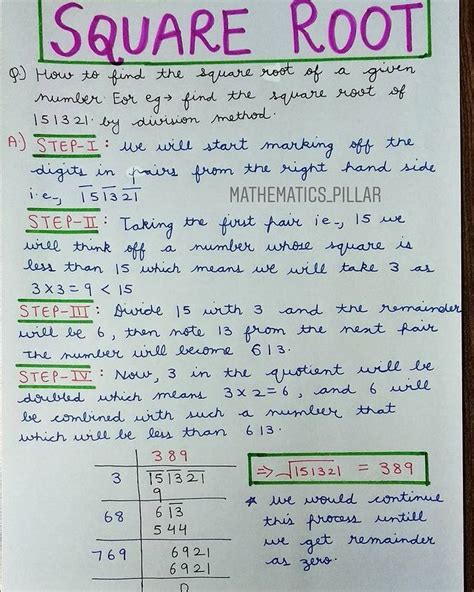 SQUARE ROOT
Q.) How to find the square root of a given
number. For eg → find the square root of
151321 by division method.
A.) STEP-I : We will start marking off the
digits in pairs from the right hand side
i.e., 15 13 21
MATHEMATICS_PILLAR
STEP-II : Taking the first pair ie., 15 we
will think off a number whose square is
less than 15 which means we will take 3 as
3×3 = 9 < 15
STEP-III : Divide 15 with 3 and the remainder
will be 6, then note 13 from the next pair
The number will become 613.
STEP-IV : Now, 3 in the quotient will be
doubled which means 3×2=6, and 6 will
be combined with such a number that
which will be less than 613.
389
3 15 13 21
9
68 6 13
544
769 6921
6921
0
⇒ √151321 = 389
* We would continue
this process untill
we get remainder
as zero.